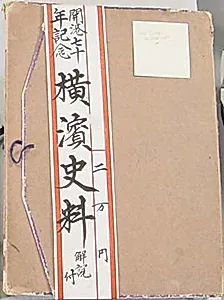 開港七十
年記念
横濱史料
二万円
解説
付